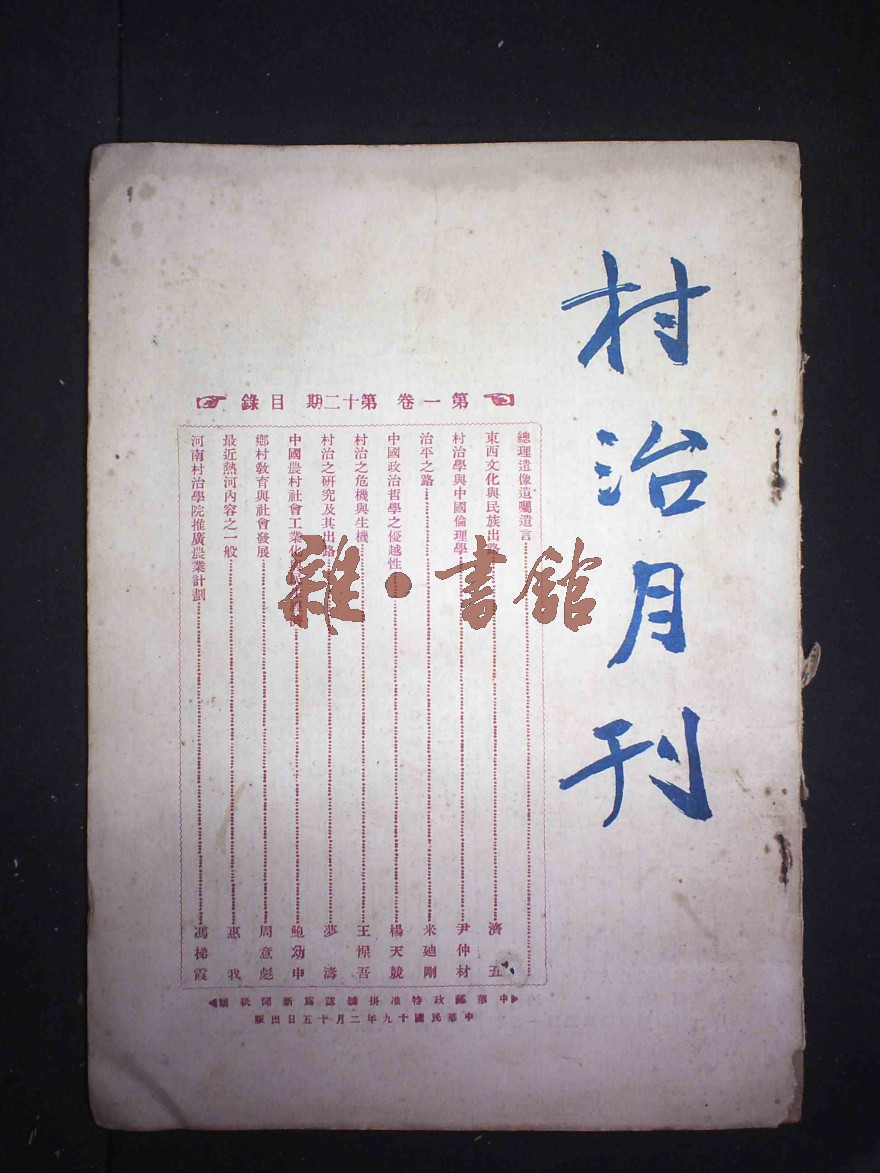 村治月刊
第一卷 第十二期 目錄
總理遺像遺囑遺言
東西文化與民族出路 濟五
村治學與中國倫理學 尹仲材
治平之路 米廸剛
中國政治哲學之優越性 楊天競
村治之危機與生機 王惺吾
村治之研究及其出路 夢濤
中國農村社會工業化 鮑幼申
鄉村教育與社會發展 周意彪
最近熱河內容之一般 惠我
河南村治學院推廣農業計劃 馮梯霞
中華郵政特准掛號認爲新聞紙類
中華民國十九年二月十五日出版
雜·書館